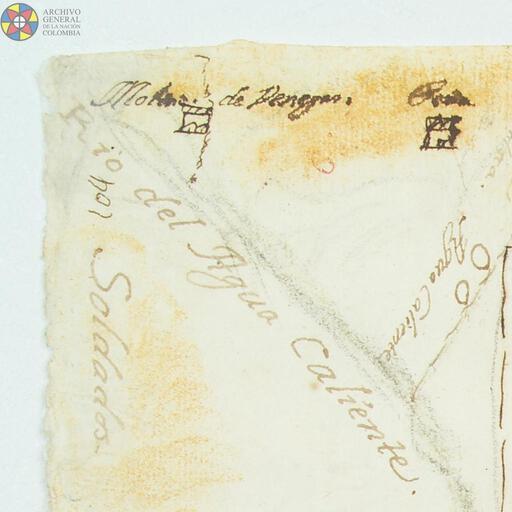 ARCHIVO
GENERAL
DE LA NACIÓN
COLOMBIA
Molino de Venegas.
Rio del Agua Caliente.
Soldados.
Agua Caliente